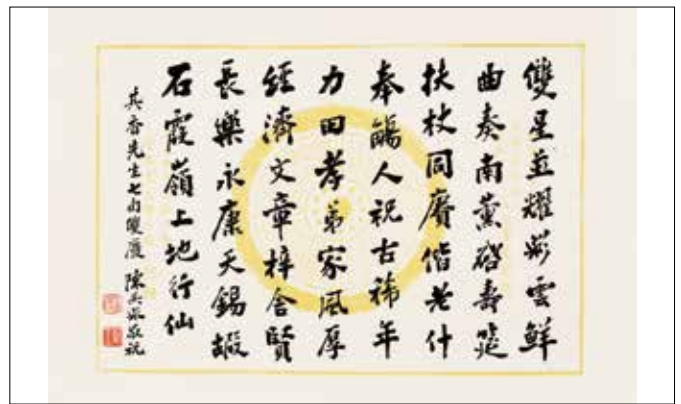 雙星並耀彩雲鮮
曲奏南薰啓壽筵
扶杖同賡偕老什
奉觴人祝古稀年
力田孝弟家風厚
經濟文章梓舍賢
長樂永康天錫嘏
石霞嶺上地行仙
其香先生七旬雙慶 陳
敬祝